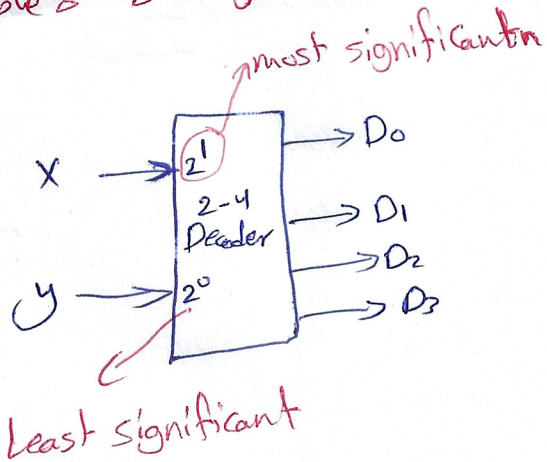 most significant
X
2¹
D0
2-4
Decoder
D1
D2
y
2⁰
D3
Least significant